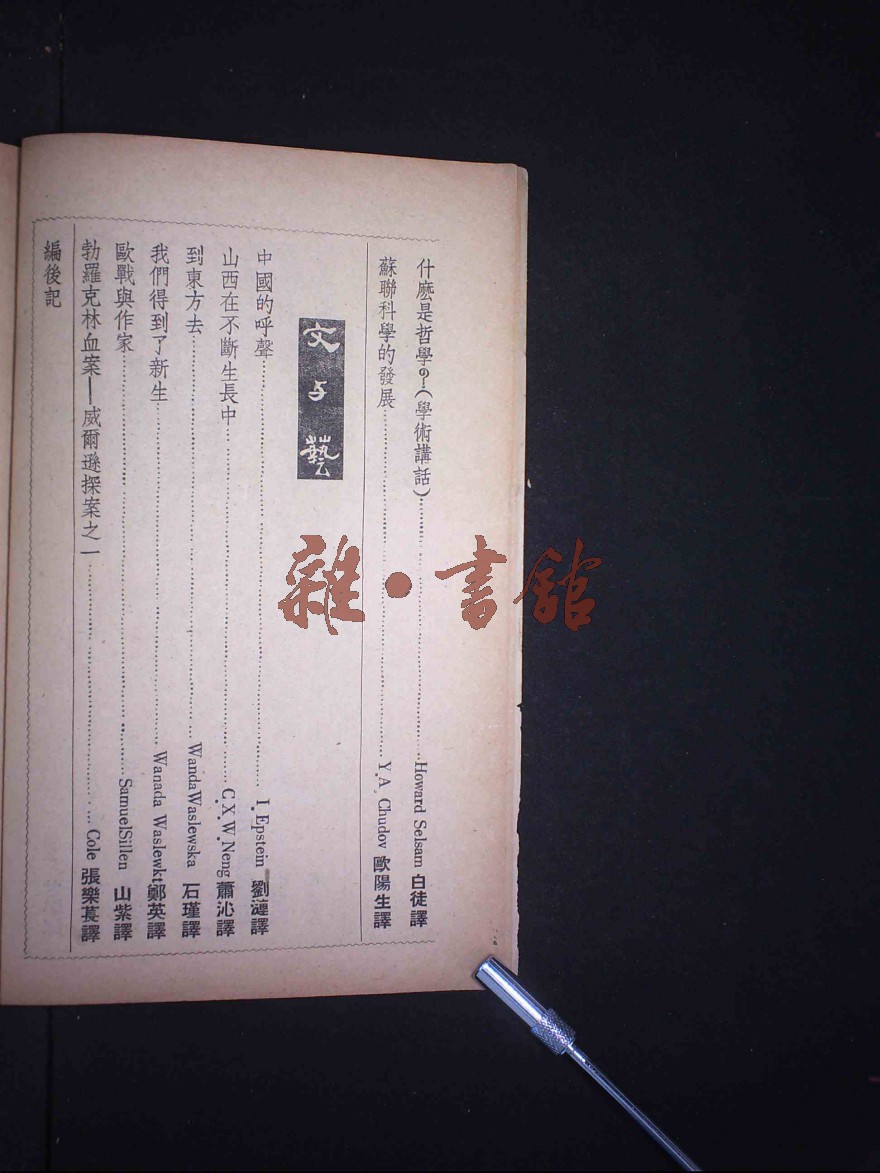 什麽是哲學？（學術講話）……Howard Selsam 白徒譯
蘇聯科學的發展……Y.A. Chudov 歐陽生譯
文与藝
中國的呼聲……I. Epstein 劉漣譯
山西在不斷生長中……C.X.W. Neng 蕭沁譯
到東方去……WandaWaslewska 石瑾譯
我們得到了新生……Wanada Waslewkt 鄭英譯
歐戰與作家……SamuelSillen 山紫譯
勃羅克林血案—威爾遜探案之一……Cole 張樂萇譯
編後記
雜·書館